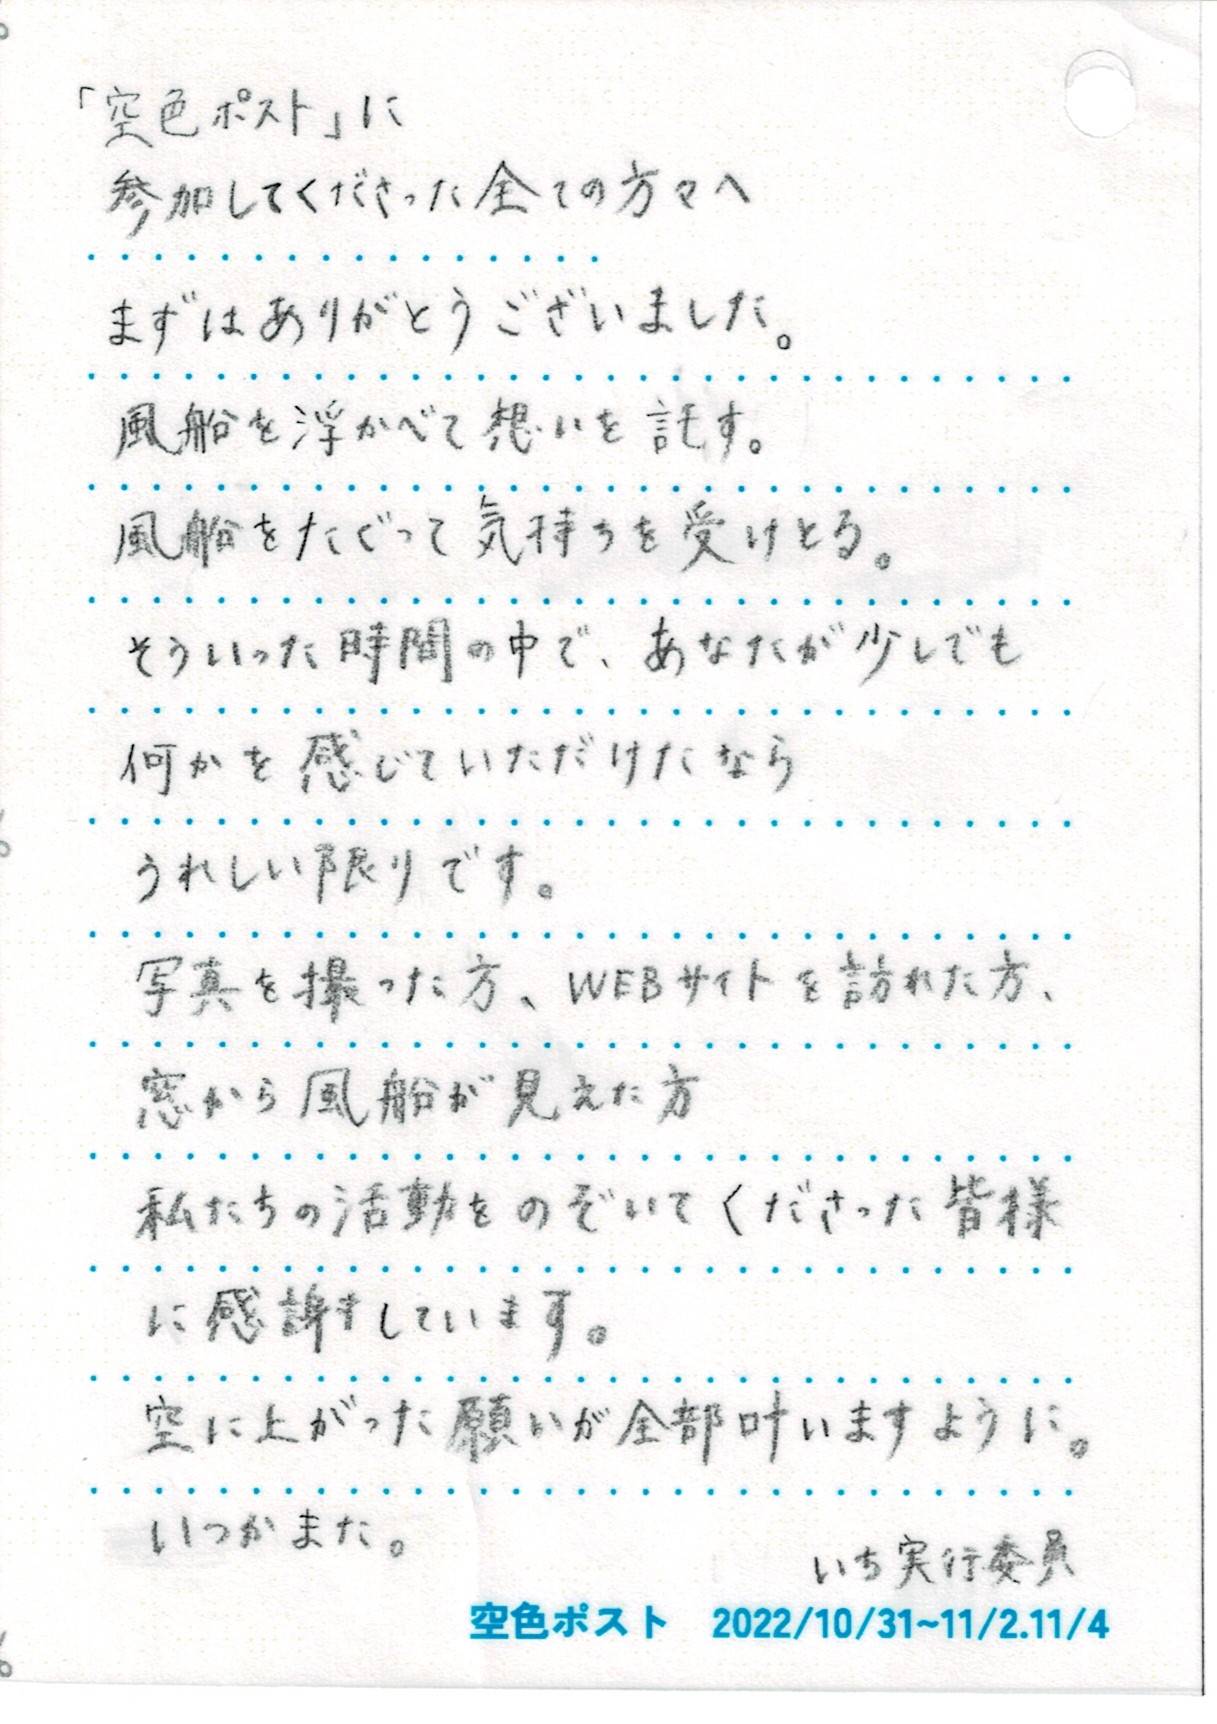 「空色ポスト」に
参加してくださった全ての方々へ
まずはありがとうございました。
風船を浮かべて想いを託す。
風船をたぐって気持ちを受けとる。
そういった時間の中で、あなたが少しでも
何かを感じていただけたなら
うれしい限りです。
写真を撮った方、WEBサイトを訪れた方、
窓から風船が見えた方
私たちの活動をのぞいてくださった皆様
に感謝をしています。
空に上がった願いが全部叶いますように。
いつかまた。
いち実行委員
空色ポスト 2022/10/31~11/2.11/4